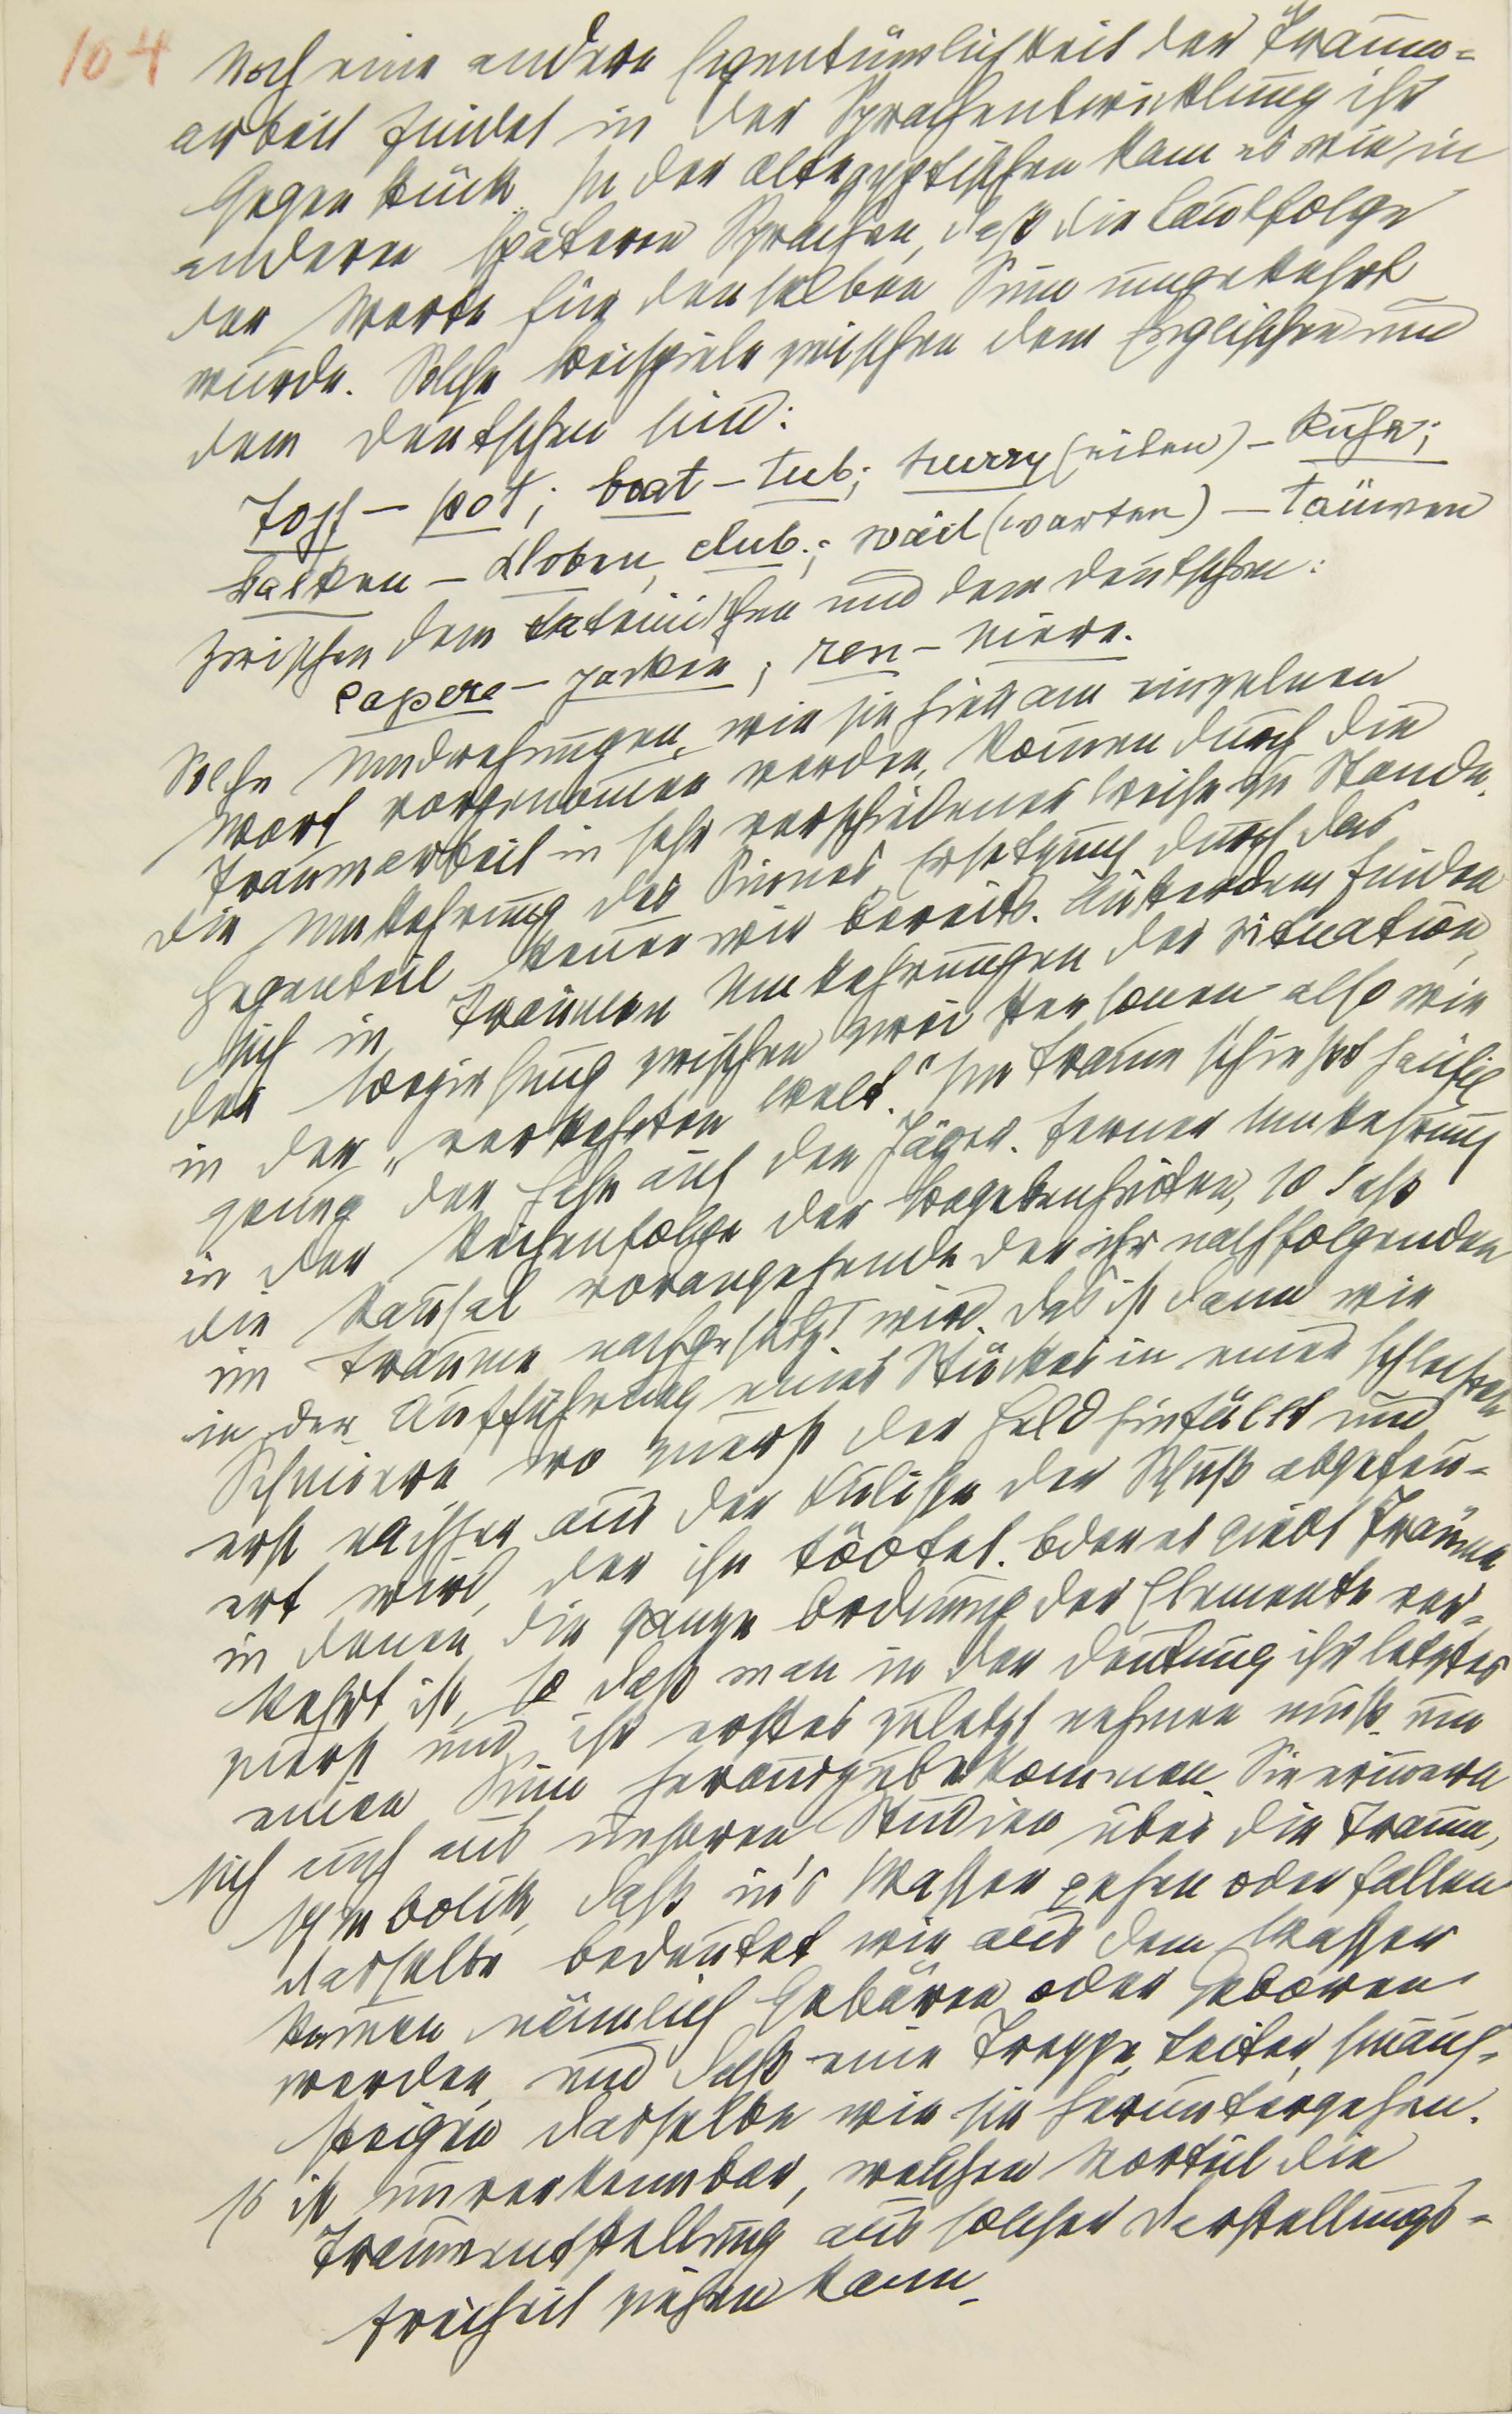 104
Noch eine andere Eigentümlichkeit der Traum=
arbeit findet in der Sprachentwicklung ihr
Gegenstück. In der altegyptischen kam es wie in
anderen späteren Sprachen, daß die Lautfolge
der Worte für denselben Sinn umgekehrt
wurde. Solche Beispiele zwischen dem Englischen und
dem deutschen sind:
Topf – pot; boat – tub; hurry (eilen) – Ruhe;
balken – Kloben, club.; wait (warten) – täuwen
zwischen dem Lateinischen und dem deutschen:
capere – packen; ren – Niere.
Solche Umdrehungen, wie sie hier am einzelnen
Wort vorgenommen werden, kommen durch die
Traumarbeit in sehr verschiedener Weise zu Stande.
Die Umkehrung des Sinnes, Ersetzung durch das
Gegenteil kennen wir bereits. Außerdem finden
sich in Träumen Umkehrungen der Situation,
der Beziehung zwischen zwei Personen, also wie
in der „verkehrten Welt." Im Traum schießt häufig
genug der Hase auf den Jäger. Ferner Umkehrung
in der Reihenfolge der Begebenheiten, so daß
die kausal vorangehende der ihr nachfolgenden
im Traume nachgesetzt wird. Das ist dann wie
in der Aufführung eines Stückes in einer schlechten
Schmiere wo zuerst der Held hinfällt und
erst nachher aus der Kulisse der Schuß abgefeu-
ert wird, der ihn tödtet. Oder es giebt Träume
in denen die ganze Ordnung der Elemente ver-
kehrt ist, so daß man in der Deutung ihr letztes
zuerst und ihr erstes zuletzt nehmen muß um
einen Sinn herauszubekommen. Sie erinnern
sich auch aus unseren Studien über die Traum,
symbolik, daß in's Wasser gehen oder fallen
dasselbe bedeutet wie aus dem Wasser
kommen nämlich Gebären oder Geboren
werden, und daß eine Treppe, Leiter, hinauf-
steigen dasselbe wie sie heruntergehen.
Es ist unverkennbar, welchen Vorteil die
Traumentstellung aus solcher Darstellungs-
freiheit ziehen kann.